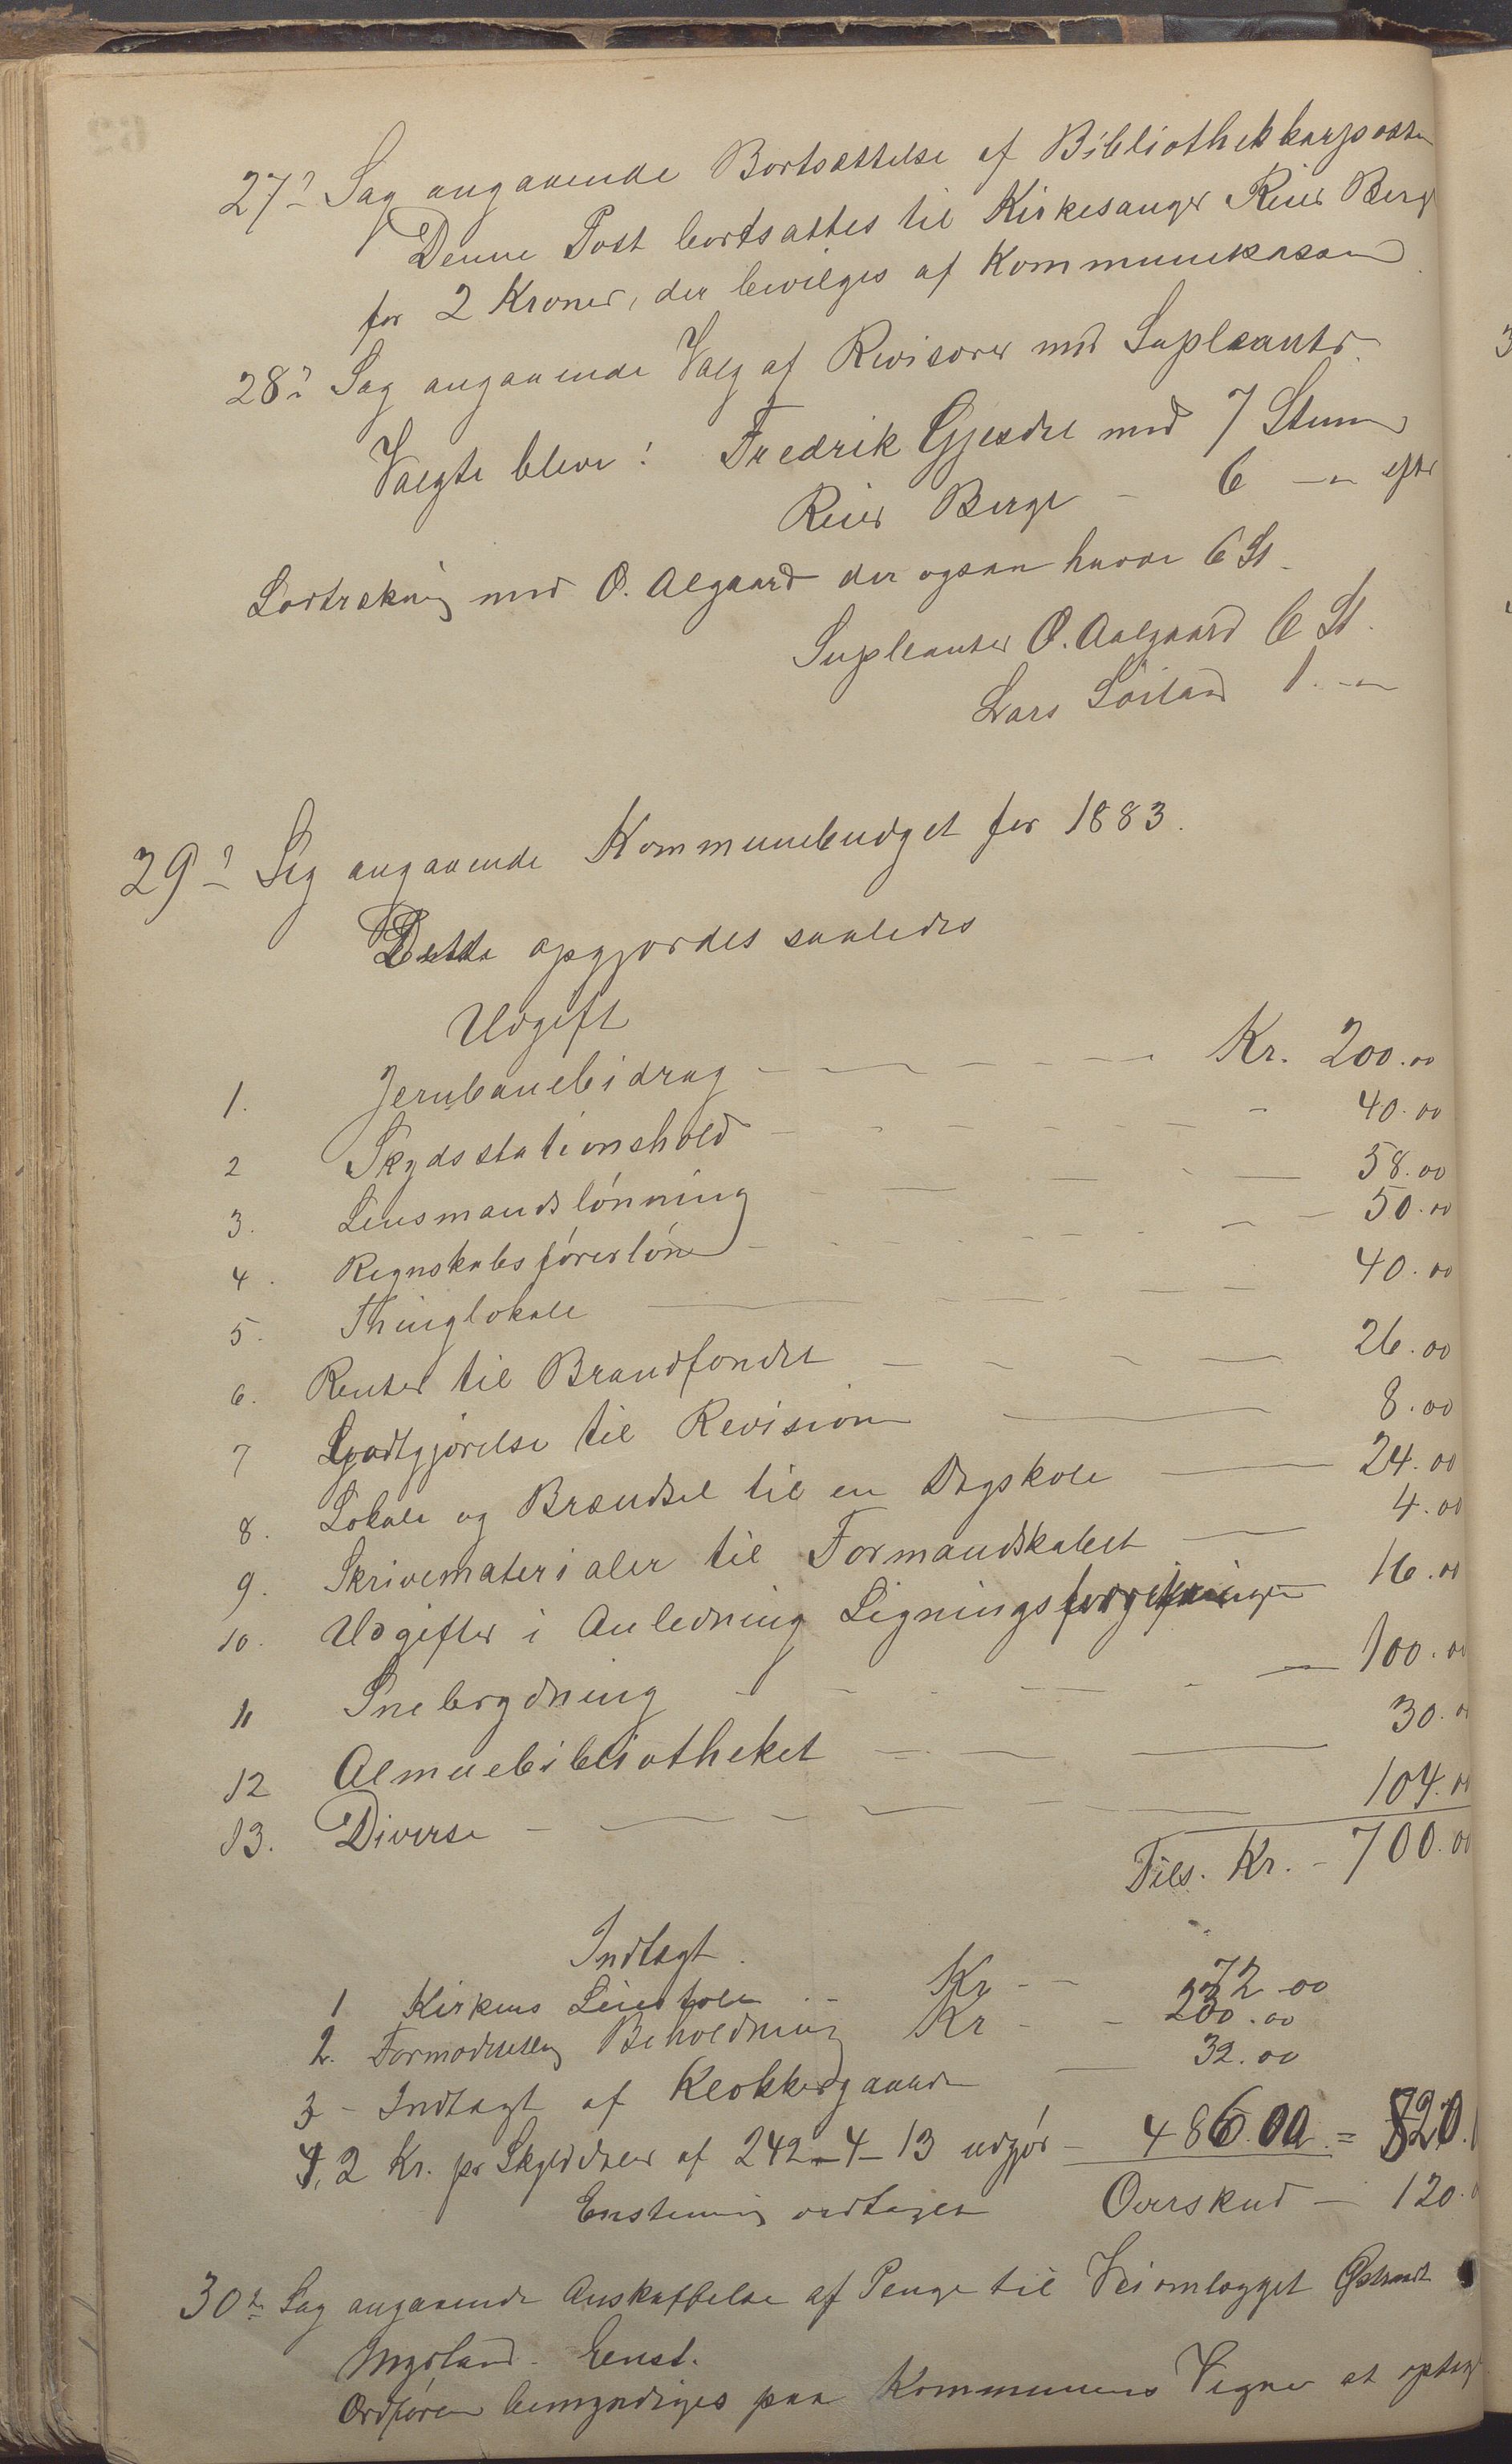 27? Sag angaaende Bortsættelse af Bibliothekkarposten
Denne Post bortsattes til Kirkesanger Reier Berge
for 2 Kroner, der bevilges af Kommunekassen
28? Sag angaaende Valg af Revisorer med Supleanter.
Valgte bleve: Fredrik Gjesdal med 7 Stemmer
Reier Berge - 6 -"- efter
Lodtrækning med O. Algaard der ogsaa havde 6 St.
Supleanter O. Aalgaard 6 St.
Lars Söiland 1 -"-
29? Sag angaaende Kommunebudget for 1883.
Dette opgjordes saaledes
Udgift
1. Jernbanebidrag - Kr. 200.00
2 Skydsstationshold - 40.00
3. Lensmandslönning - 58.00
4. Regnskabsförerlön - 50.00
5. Thinglokale - 40.00
6. Renter til Brandfondet - 26.00
7 Godtgjörelse til Revision - 8.00
8. Lokale og Brændsel til en Dagskole - 24.00
9. Skrivematerialer til Formandskabet - 4.00
10. Udgifter i Anledning Ligningsforretningen 16.00
11 Snebrydning - 100.00
12 Almuebibliotheket - 30.00
13. Diverse - 104.00
Tils. Kr. - 700.00
Indtægt.
1 Kirkens Kr - 72.00
2. Formodentlig Beholdning Kr - 230.00
3 - Indtægt af Klokkergaarden 32.00
4, 2 Kr. pr Skylddaler af 242-4-13 udgjör - 486.00 = 820.
Enstemmig vedtaget Overskud - 120.
30te Sag angaaende Anskaffelse af Penge til Veiomlægget
Myrland. Enst.
Ordfören bemyndiges paa Kommunens Vegne at optage